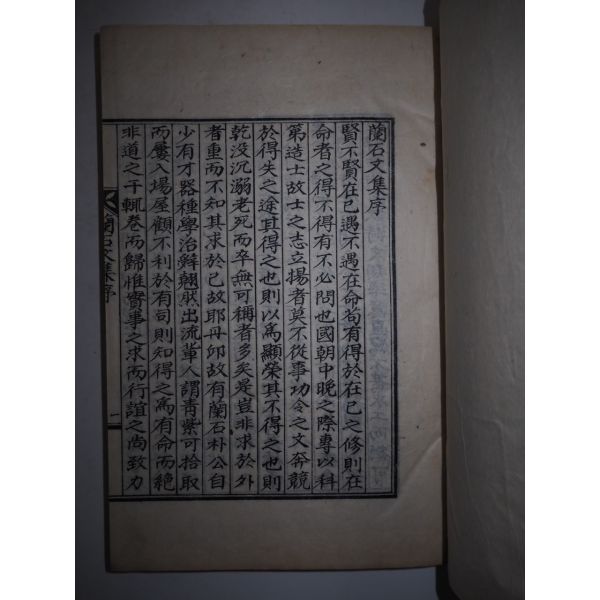 蘭石文集序
賢不賢在己遇不遇在命苟有得於在己之修則在
命者之得不得有不必問也國朝中晚之際專以科
第造士故士之志立揚者莫不從事功令之文奔競
於得失之途其得之也則以爲顯榮其不得之也則
乾没沉溺老死而卒無可稱者多矣是豈非求於外
者重而不知其求於己故耶丹邱故有蘭石朴公自
少有才器種學治辭翹然出流輩人謂靑紫可拾取
而屢入塲屋顧不利於有司則知得之爲有命而絕
非道之干輒卷而歸惟實事之求而行誼之尚致力
蘭石文集序
一